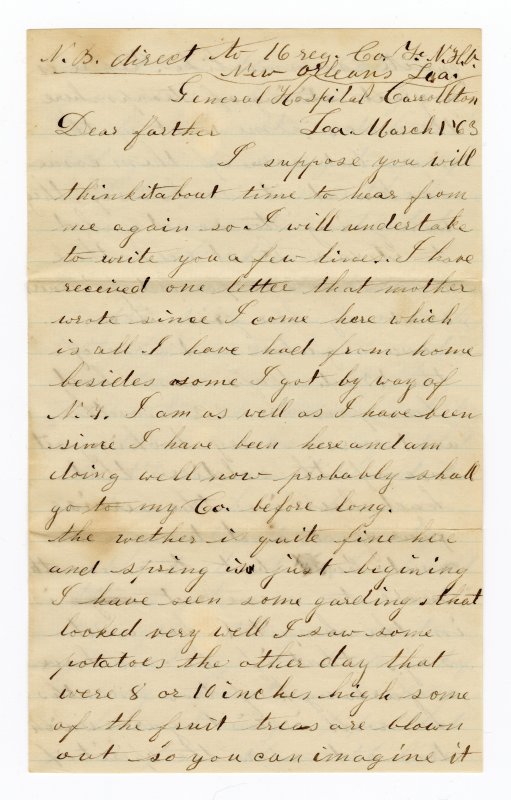 N. B. direct to 16 reg. Co. F. N.H.V.
New Orleans Loa.
General Hospital Carrollton
Dear farther Loa March 1 '63
I suppose you will
thinkitabout time to hear from
me again so I will undertake
to write you a few lines. I have
received one letter that mother
wrote since I come here which
is all I have had from home
besides some I got by way of
N.Y. I am as well as I have been
since I have been here and am
doing well now probably shall
go to my Co. before long.
the wether is quite fine here
and spring is just begining
I have seen some gardings that
looked very well I saw some
potatoes the other day that
were 8 or 10 inches high some
of the fruit trees are blown
out so you can imagine it